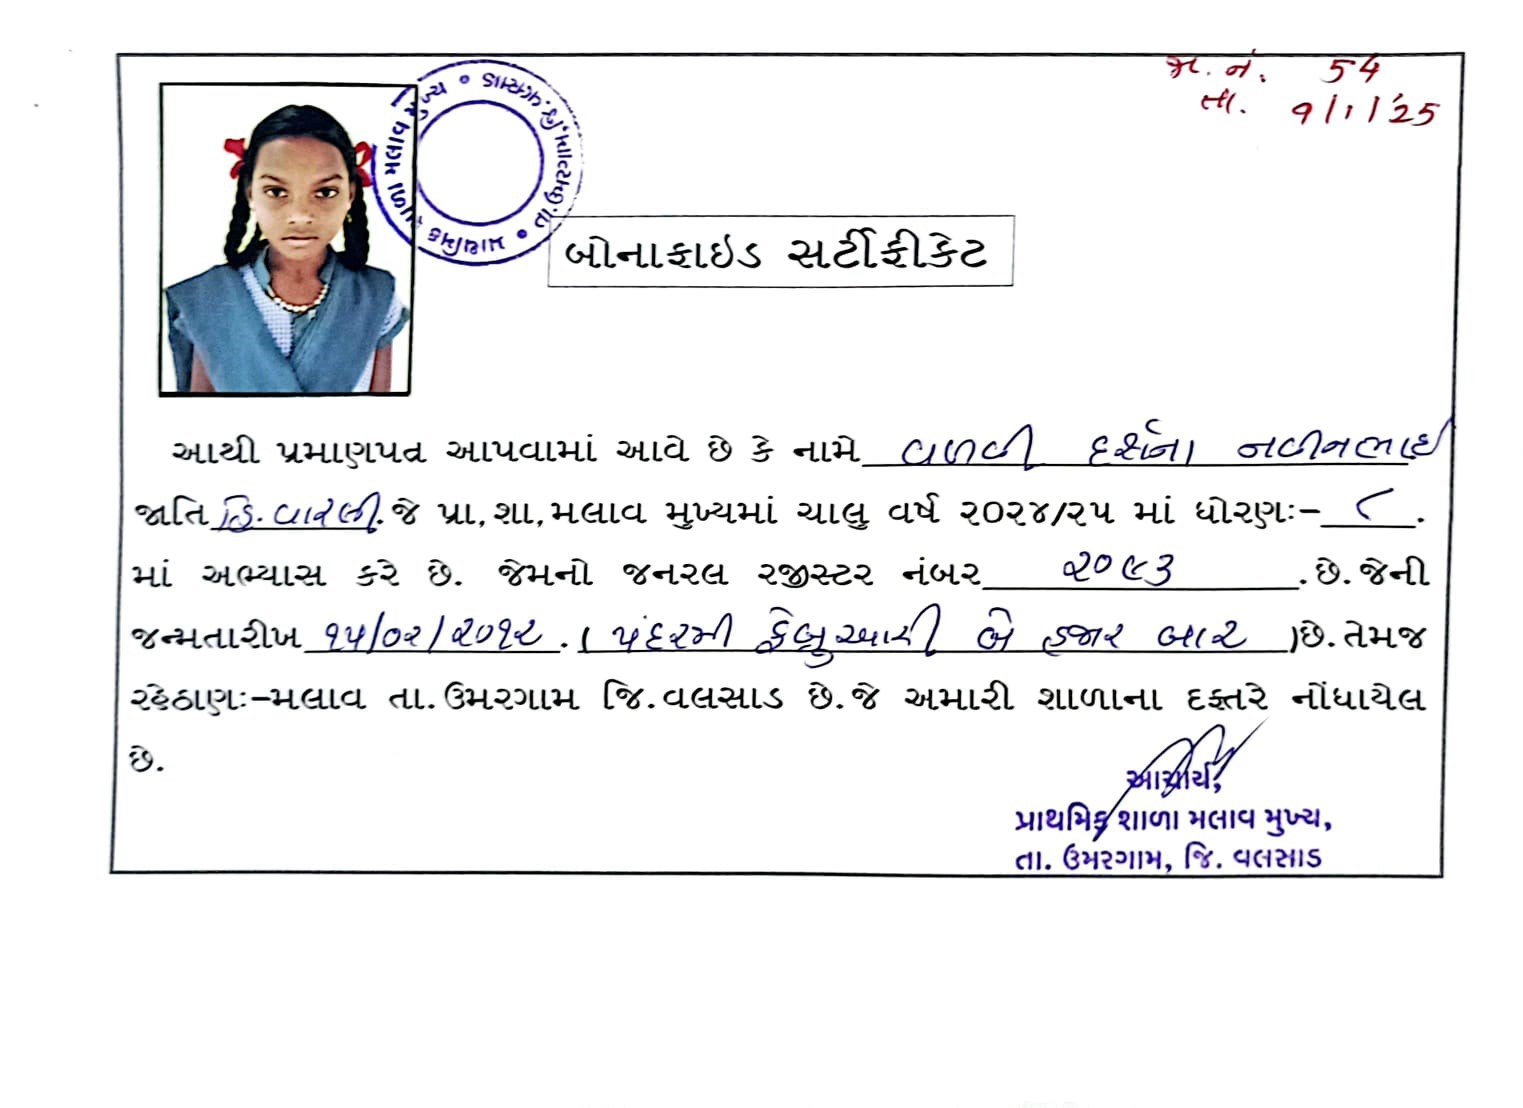 જા. નં. 54
તા. 9/1/'25
પ્રાથમિક શાળા મલાવ મુખ્ય • તા.ઉમરગામ, જી.વલસાડ •
બોનાફાઇડ સર્ટીફીકેટ
આથી પ્રમાણપત્ર આપવામાં આવે છે કે નામે વળવી દર્શના નવીનભાઇ
જાતિ હિ. વારલી. જે પ્રા, શા, મલાવ મુખ્યમાં ચાલુ વર્ષ ૨૦૨૪/૨૫ માં ધોરણઃ- ૮.
માં અભ્યાસ કરે છે. જેમનો જનરલ રજીસ્ટર નંબર ૨૦૯૩. છે. જેની
જન્મતારીખ ૧૫/૦૨/૨૦૧૨. ( પંદરમી ફેબ્રુઆરી બે હજાર બાર )છે. તેમજ
રહેઠાણઃ-મલાવ તા. ઉમરગામ જિ. વલસાડ છે. જે અમારી શાળાના દફ્તરે નોંધાયેલ
છે.
આચાર્ય,
પ્રાથમિક શાળા મલાવ મુખ્ય,
તા. ઉમરગામ, જિ. વલસાડ